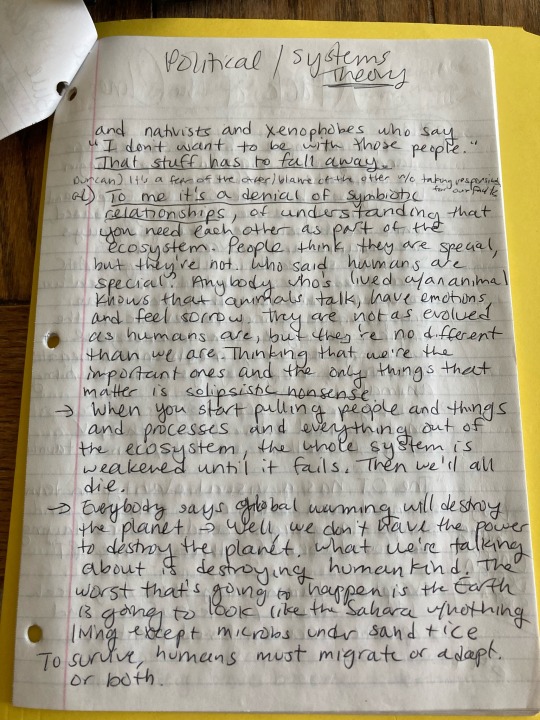 Political / Systems
Theory
and nativists and xenophobes who say
"I dont want to be with those people."
That stuff has to fall away.
Duncan) It's a fear of the other/blame of the other r/c taking responsib
for our faults
To me it's a denial of symbiotic
relationships, of understanding that
you need each other as part of the
ecosystem. People think they are special,
but they're not. Who said humans are
special? Anybody who's lived w/an animal
knows that animals talk, have emotions,
and feel sorrow. They are not as evolved
as humans are, but they're no different
than we are. Thinking that we're the
important ones and the only things that
matter is solipsistic nonsense.
→ When you start pulling people and things
and processes and everything out of
the ecosystem, the whole system is
weakened until it fails. Then we'll all
die.
→ Everybody says global warming will destroy
the planet → Well, we don't have the power
to destroy the planet. What we're talking
about is destroying humankind. The
worst that's going to happen is the Earth
is going to look like the Sahara w/nothing
living except microbs undr sand + ice
To survive, humans must migrate or adapt.
or both.